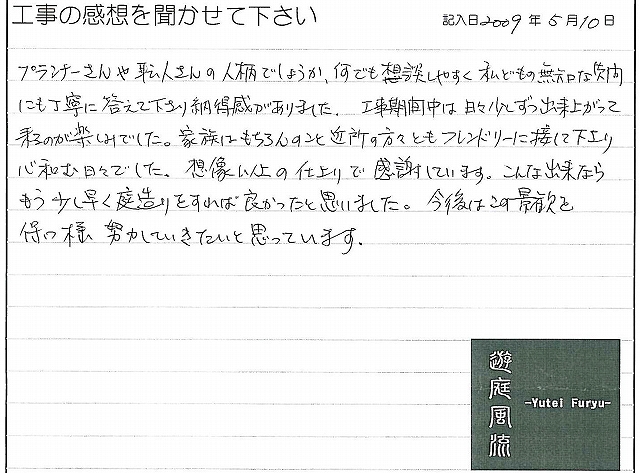 工事の感想を聞かせて下さい
記入日2009年5月10日
プランナーさんや職人さんの人柄でしょうか、何でも想談しやすく私どもの無知な質問
にも丁寧に答えて下さり納得感がありました. 工事期間中は日々少しずつ出来上がって
来るのが楽しみでした。家族はもちろんのこと近所の方々ともフレンドリーに接して下さり
心和む日々でした. 想像以上の仕上りで感謝しています。こんな出来なら
もう少し早く庭造りをすれば良かったと思いました。今後はこの景観を
保つ様 努力していきたいと思っています.
遊庭風流
-Yutei Furyu-